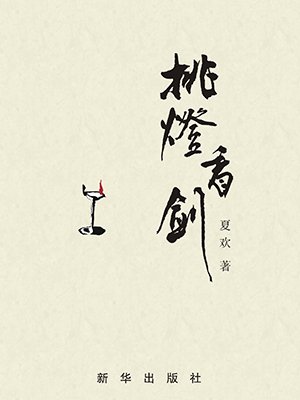 挑燈看劍
夏欢 著
新华出版社